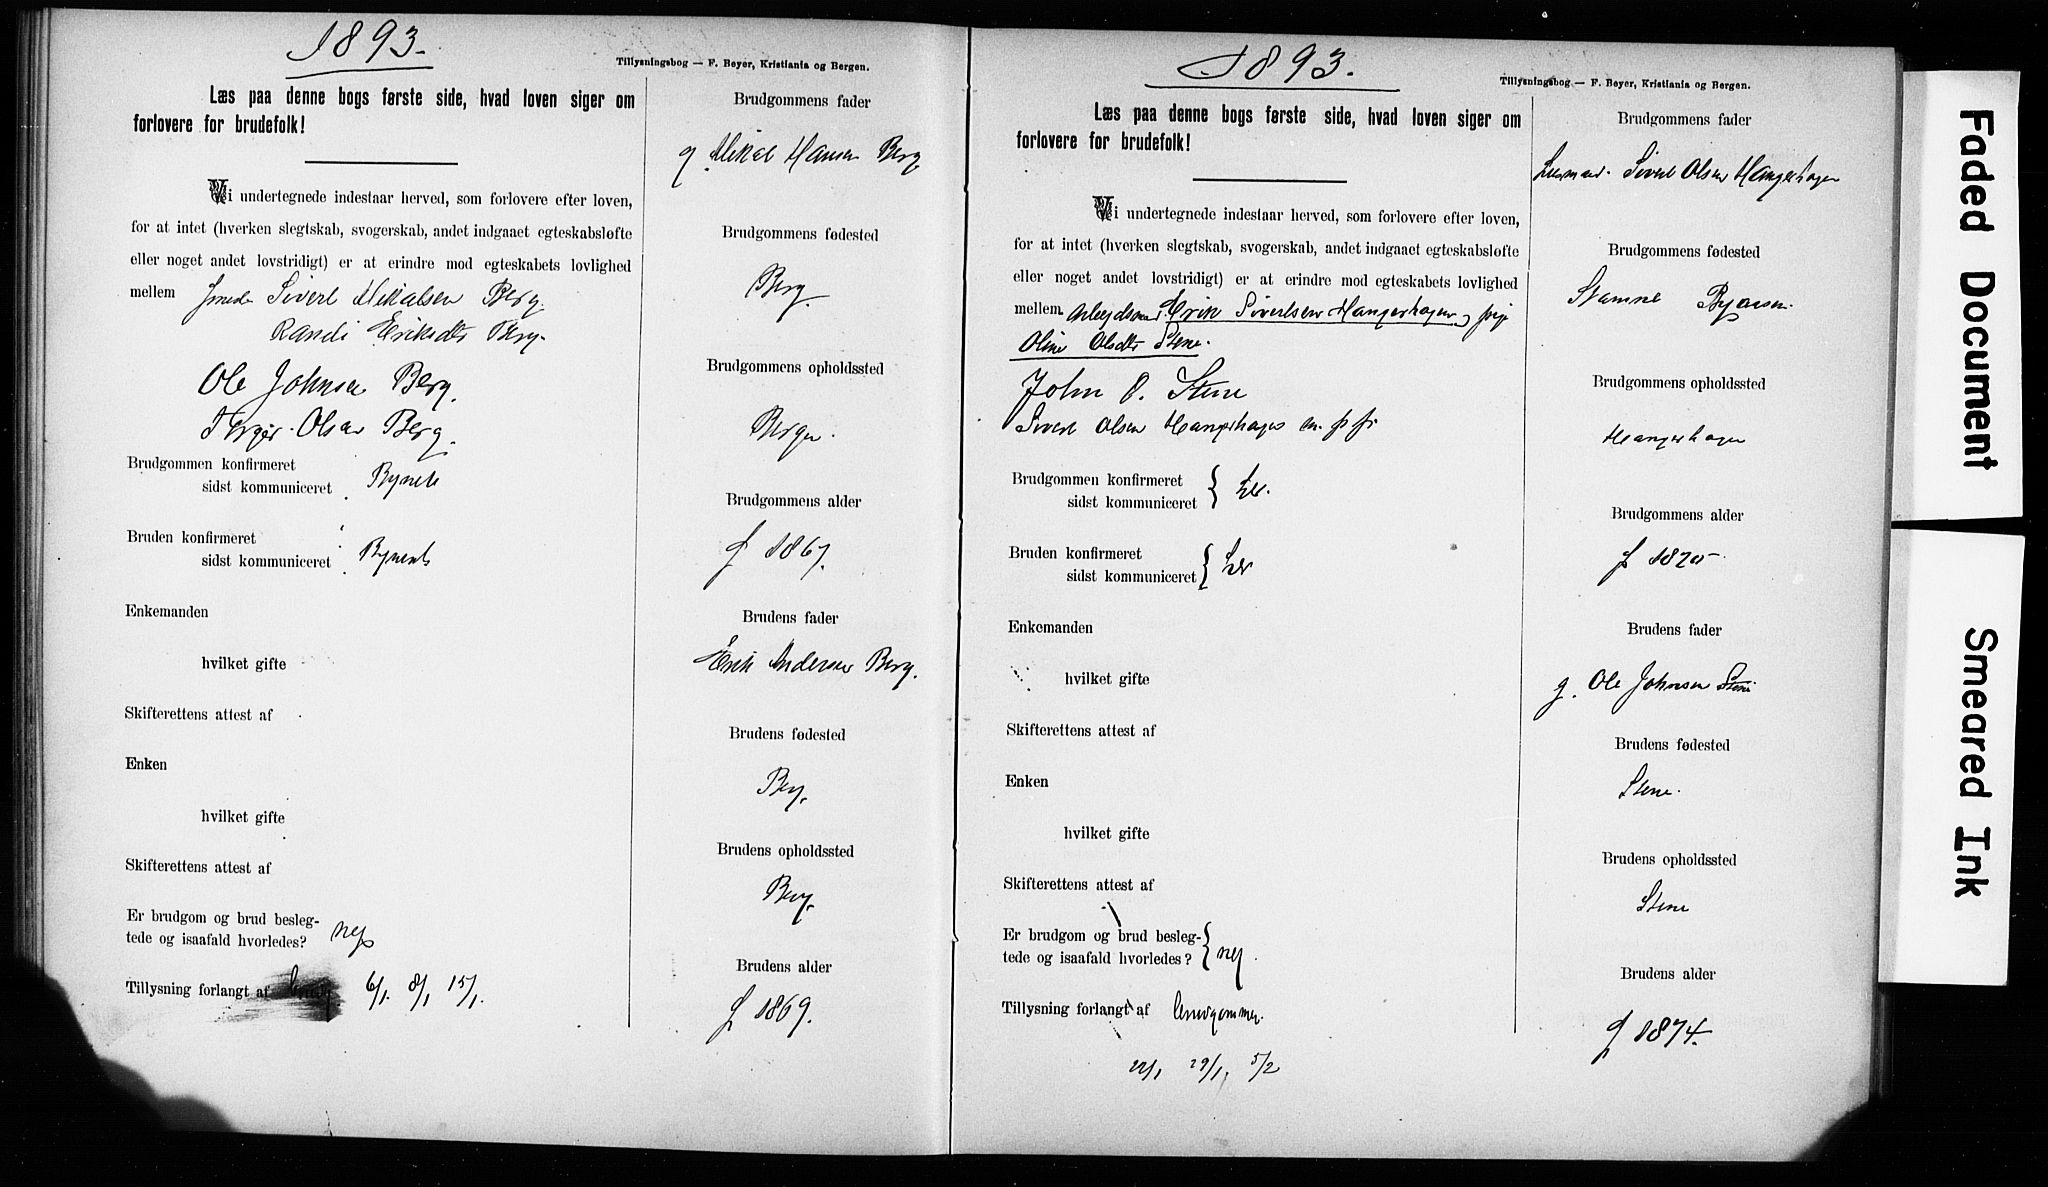 1893.
Tillysningsbog — F. Beyer, Kristiania og Bergen.
Læs paa denne bogs første side, hvad loven siger om
forlovere for brudefolk!
Vi undertegnede indestaar herved, som forlovere efter loven,
for at intet (hverken slegtskab, svogerskab, andet indgaaet egteskabsløfte
eller noget andet lovstridigt) er at erindre mod egteskabets lovlighed
mellem Sivert Mikalsen Berg.
Randi Eriksdtr Berg.
Ole Johnsen Berg.
Olsen Berg.
Brudgommen konfirmeret
sidst kommuniceret Bynets
Bruden konfirmeret
sidst kommuniceret Bynets
Enkemanden
hvilket gifte
Skifterettens attest af
Enken
hvilket gifte
Skifterettens attest af
Er brudgom og brud besleg-
tede og isaafald hvorledes? nej
Tillysning forlangt af 6/1. 8/1 15/1.
Brudgommens fader
g Mikal Hansen Berg
Brudgommens fødested
Berg.
Brudgommens opholdssted
Bergen.
Brudgommens alder
f 1867.
Brudens fader
Erik Andersen Berg.
Brudens fødested
Berg.
Brudens opholdssted
Berg.
Brudens alder
f 1869.
1893.
Tillysningsbog — F. Beyer, Kristiania og Bergen.
Læs paa denne bogs første side, hvad loven siger om
forlovere for brudefolk!
Vi undertegnede indestaar herved, som forlovere efter loven,
for at intet (hverken slegtskab, svogerskab, andet indgaaet egteskabsløfte
eller noget andet lovstridigt) er at erindre mod egteskabets lovlighed
mellem Arbeidsm. Erik Sivertsen Hangerhagen og pige
Oline Olsdtr Stene.
John O. Stene
Sivert Olsen Hangerhagen m. p. p.
Brudgommen konfirmeret
sidst kommuniceret } her.
Bruden konfirmeret
sidst kommuniceret } her
Enkemanden
hvilket gifte
Skifterettens attest af
Enken
hvilket gifte
Skifterettens attest af
Er brudgom og brud besleg-
tede og isaafald hvorledes? } nej.
Tillysning forlangt af brudgommen.
22/1 29/1. 5/2
Brudgommens fader
Sivert Olsen Hangerhagen
Brudgommens fødested
Stamne
Brudgommens opholdssted
Hangerhagen
Brudgommens alder
Brudens fader
g. Ole Johnsen Stene
Brudens fødested
Stene.
Brudens opholdssted
Stene
Brudens alder
f 1874.
Faded Document
Smeared Ink